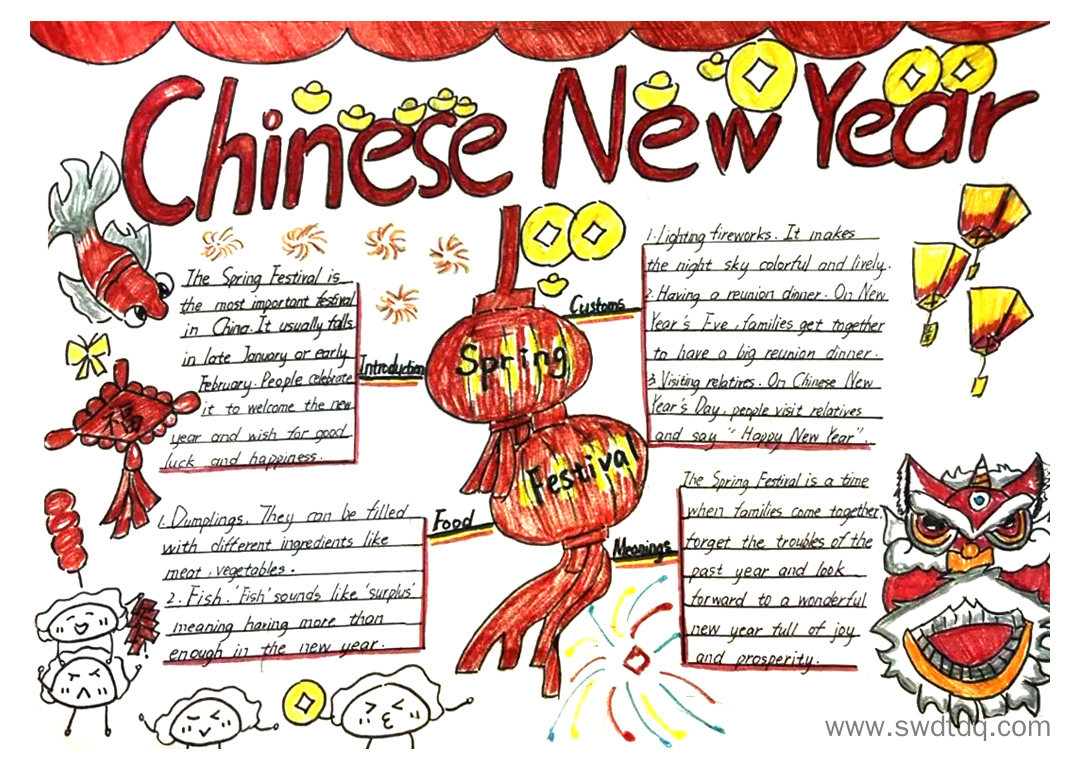 Chinese New Year
Spring
Festival
Introduction
The Spring Festival is
the most important festival
in China. It usually falls
in late January or early
February. People celebrate
it to welcome the new
year and wish for good
luck and happiness.
福
Customs
1. Lighting fireworks. It makes
the night sky colorful and lively.
2. Having a reunion dinner. On New
Year's Eve, families get together
to have a big reunion dinner.
3. Visiting relatives. On Chinese New
Year's Day, people visit relatives
and say "Happy New Year".
Food
1. Dumplings. They can be filled
with different ingredients like
meat, vegetables.
2. Fish. 'Fish' sounds like 'surplus'
meaning having more than
enough in the new year.
Meanings
The Spring Festival is a time
when families come together,
forget the troubles of the
past year and look
forward to a wonderful
new year full of joy
and prosperity.
www.swdtdq.com